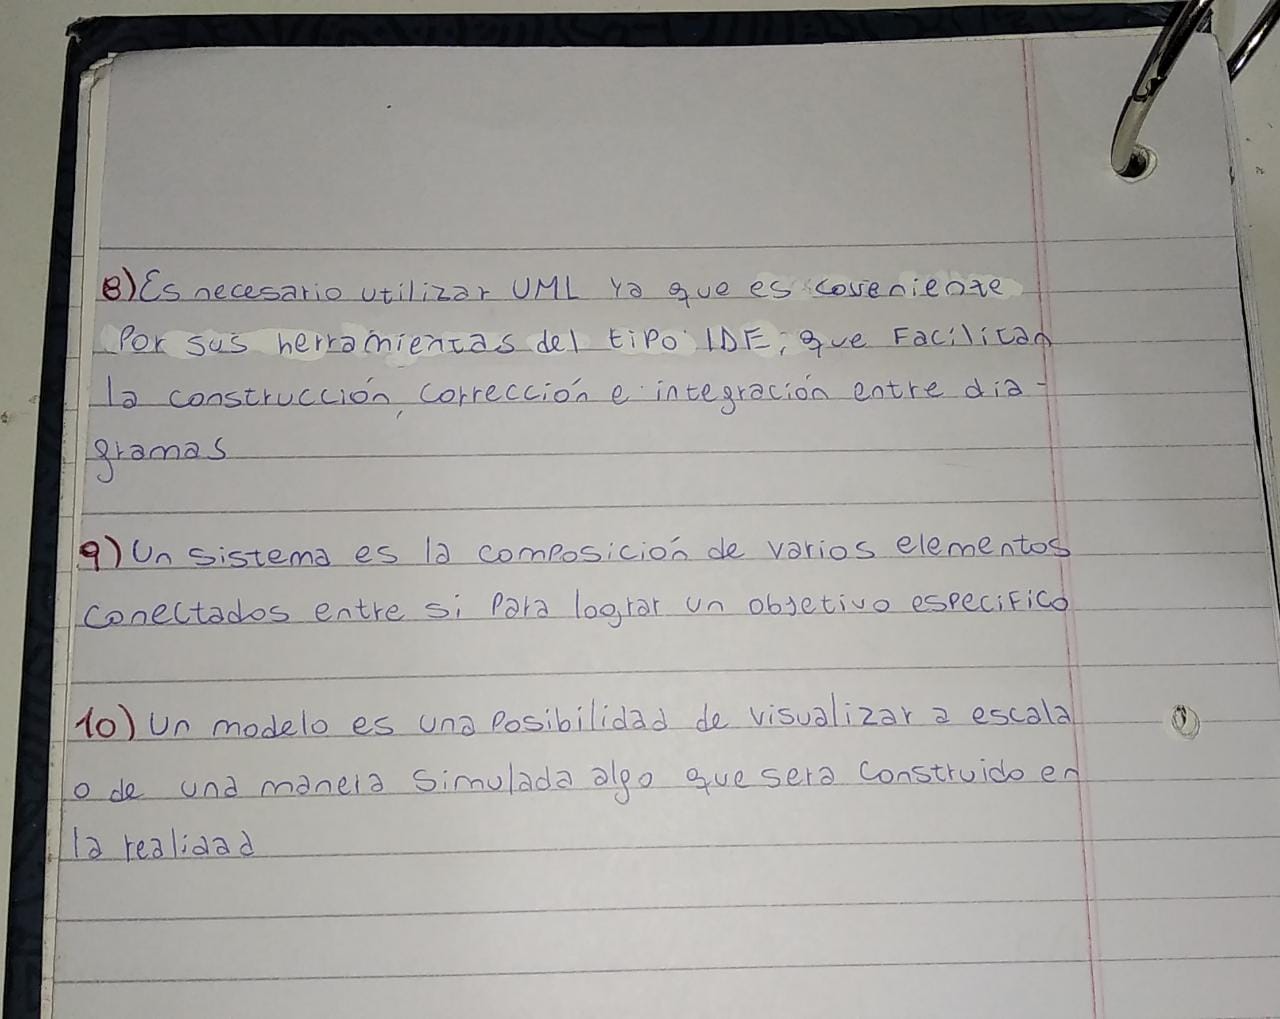 8) Es necesario utilizar UML ya que es coveniente
Por sus herramientas del tipo IDE, que Facilitan
la construcción, corrección e integración entre dia-
gramas
9) Un sistema es la composición de varios elementos
conectados entre si Para lograr un objetivo especifico
10) Un modelo es una Posibilidad de visualizar a escala
o de una manera simulada algo que sera construido en
la realidad